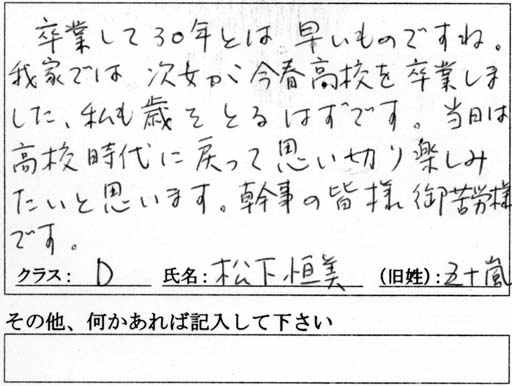 卒業して30年とは早いものですね。
我家では次女が今春高校を卒業しま
した、私も歳をとるはずです。当日は
高校時代に戻って思い切り楽しみ
たいと思います。幹事の皆様御苦労様
です。
クラス: D 氏名: 松下恒美 (旧姓): 五十嵐
その他、何かあれば記入して下さい